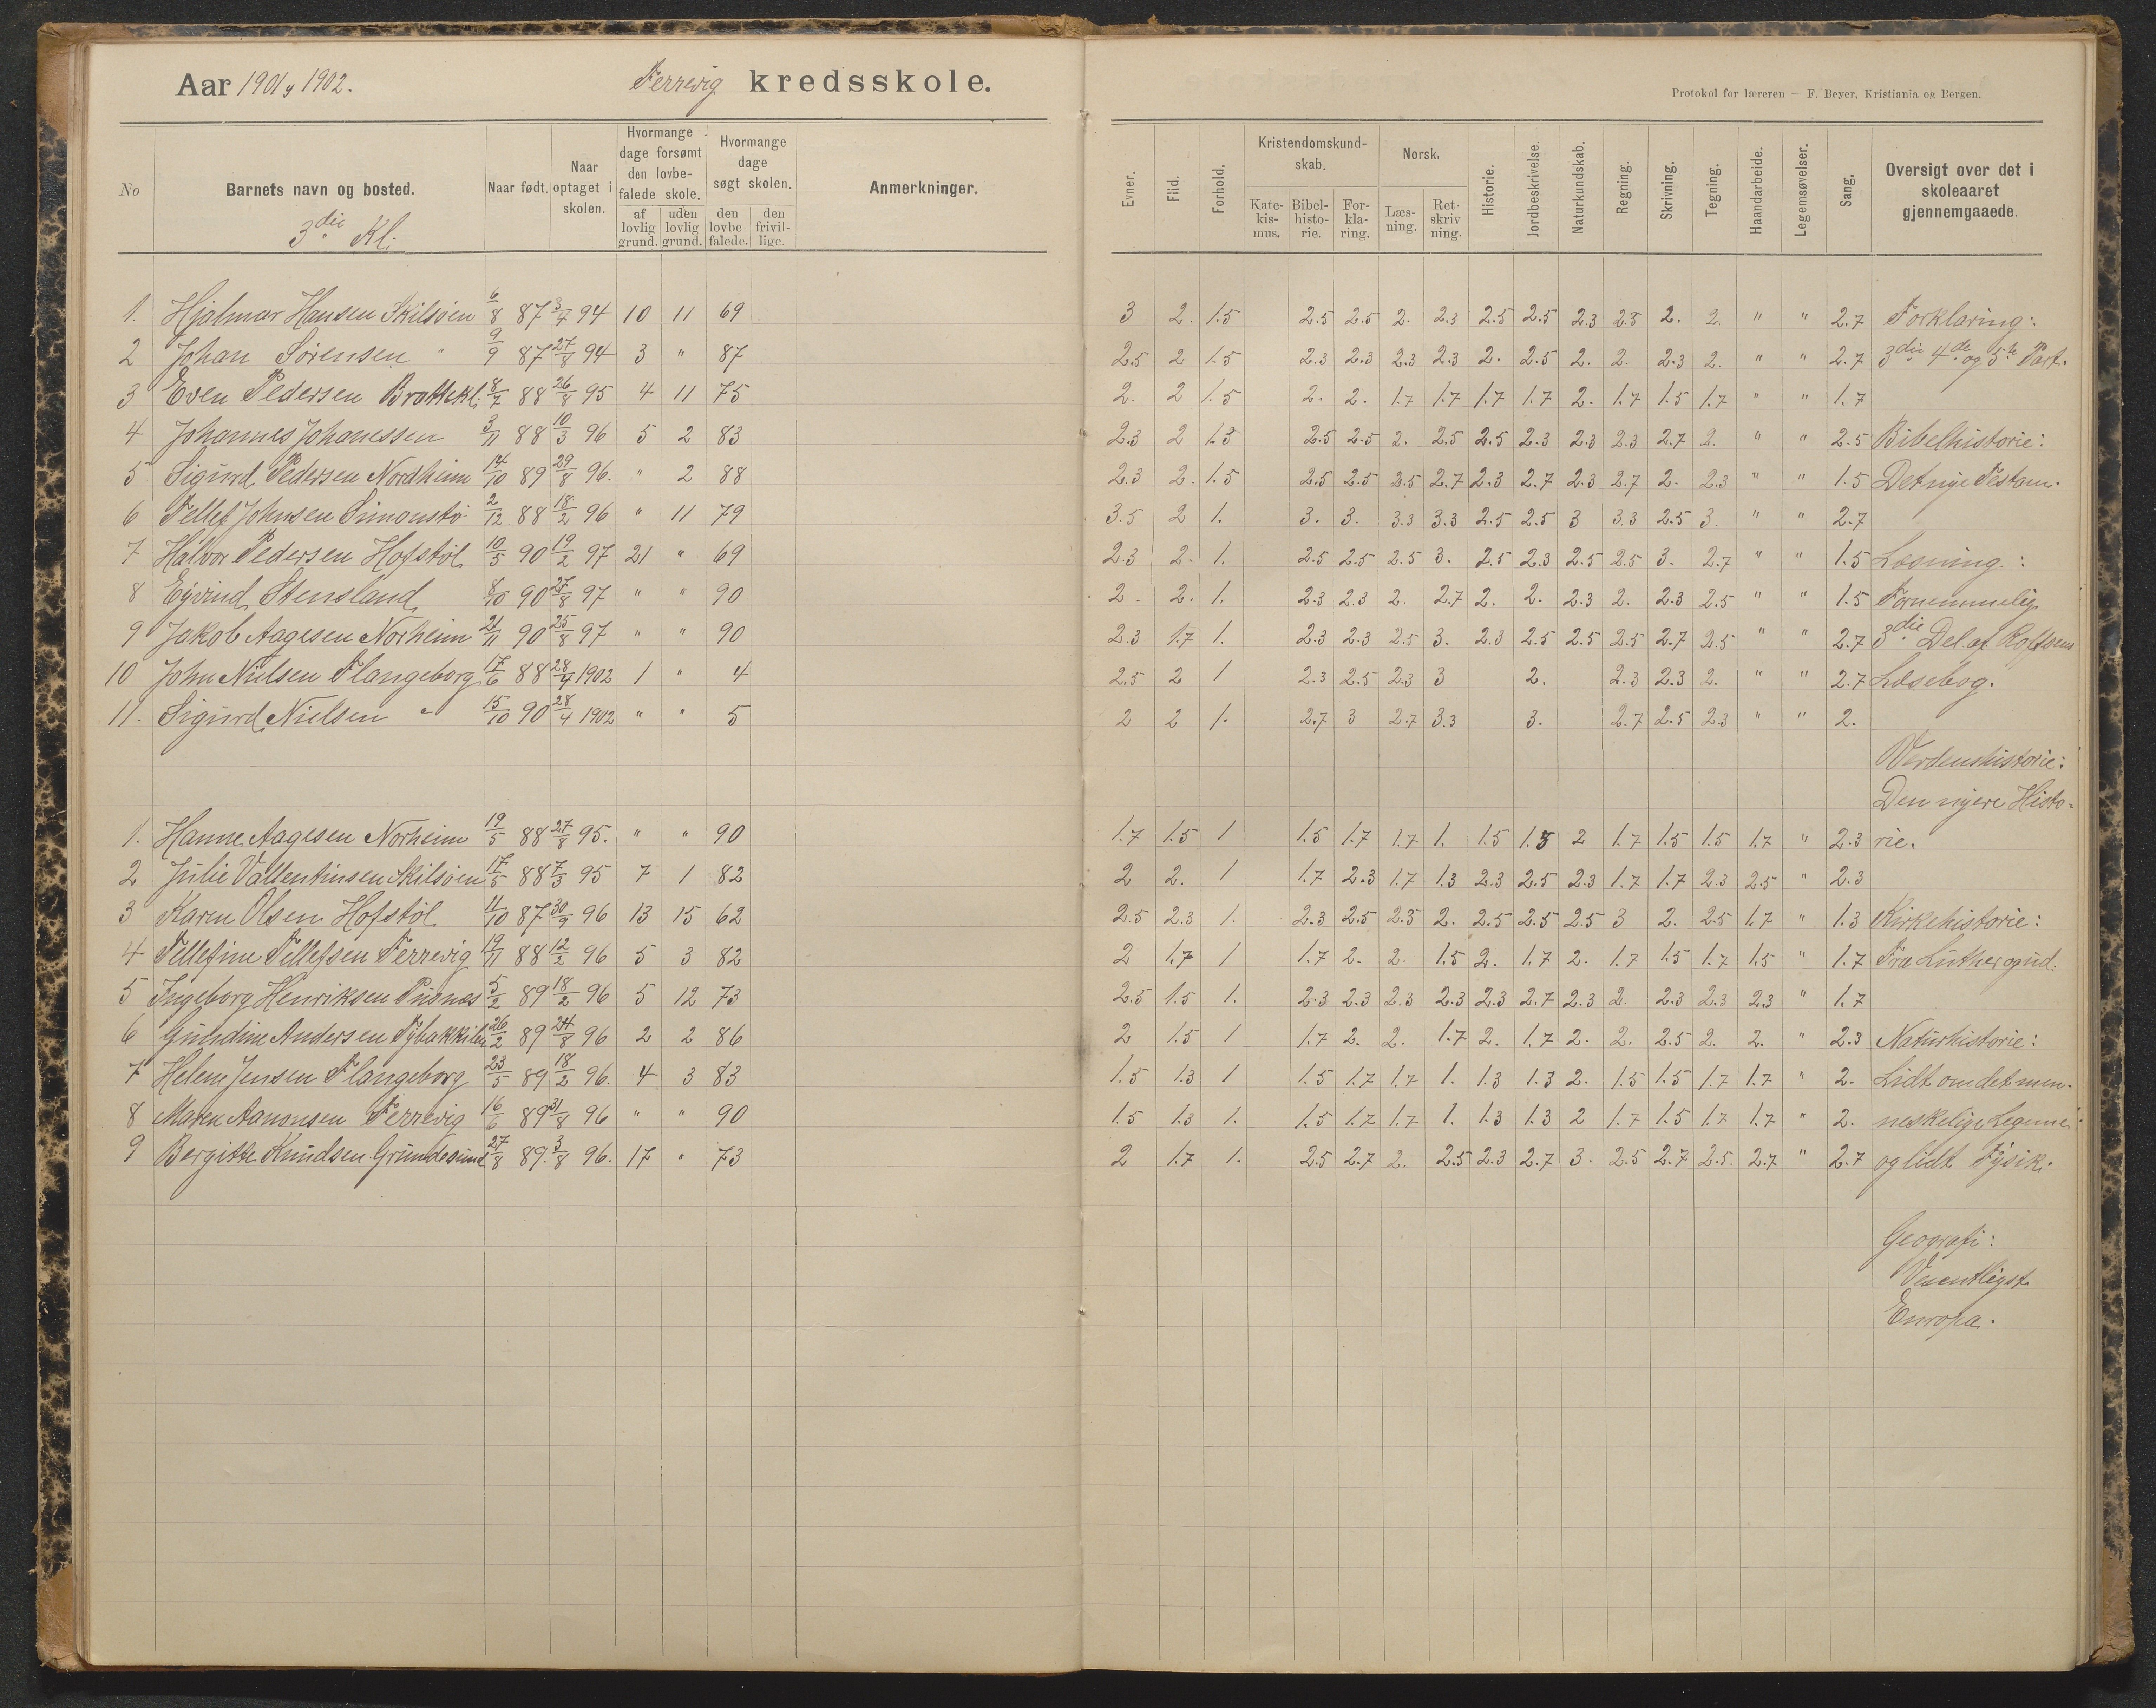 Aar 1901 & 1902. Færevig kredsskole.
Protokol for læreren — F. Beyer, Kristiania og Bergen.
No Barnets navn og bosted. Naar født. Naar optaget i skolen. Hvormange dage forsømt den lovbefalede skole. af lovlig grund. uden lovlig grund. Hvormange dage søgt skolen. den lovbefalede. den frivillige. Anmerkninger. Evner. Flid. Forhold. Kristendomskundskab. Katekismus. Bibelhistorie. Forklaring. Norsk. Læsning. Retskrivning. Historie. Jordbeskrivelse. Naturkundskab. Regning. Skrivning. Tegning. Haandarbeide. Legemsøvelser. Sang. Oversigt over det i skoleaaret gjennemgaaede.
3die Kl.
1. Hjalmar Hansen Skilsøen 6/8 87 3/7 94 10 11 69 3 2. 1.5 2.5 2.5 2. 2.3 2.5 2.5 2.3 2.3 2. 2. " " 2.7 Forklaring:
2 Johan Sørensen " 9/9 87 27/8 94 3 " 87 2.5 2 1.5 2.3 2.3 2.3 2.3 2. 2.5 2. 2. 2.3 2. " " 2.7 3die 4de og 5te Part.
3 Even Pedersen Brattekl. 8/7 88 26/8 95 4 11 75 2. 2 1.5 2. 2. 1.7 1.7 1.7 1.7 2. 1.7 1.5 1.7 " " 1.7
4 Johannes Johanessen 3/11 88 10/3 96 5 2 83 2.3 2 1.3 2.5 2.5 2. 2.5 2.5 2.3 2.3 2.3 2.7 2. " " 2.5 Bibelhistorie:
5 Sigurd Pedersen Nordheim 14/10 89 29/8 96. " 2 88 2.3 2. 1.5 2.5 2.5 2.5 2.7 2.3 2.7 2.3 2.7 2. 2.3 " " 1.5 Det nye Testam.
6 Tellef Johnsen Simonstø 2/12 88 18/2 96 " 11 79 3.5 2 1. 3. 3. 3.3 3.3 2.5 2.5 3 3.3 2.5 3. " " 2.7
7 Halvor Pedersen Hofstøl 10/5 90 19/2 97 21 " 69 2.3 2. 1. 2.5 2.5 2.5 3. 2.5 2.3 2.5 2.5 3. 2.7 " " 1.5 Læsning:
8 Eyvind Stensland 8/10 90 27/8 97 " " 90 2. 2. 1. 2.3 2.3 2. 2.7 2. 2. 2.3 2. 2.3 2.5 " " 1.5 Fornemmelig
9 Jakob Aagesen Norheim 21/11 90 25/8 97 " " 90 2.3 1.7 1. 2.3 2.3 2.5 3. 2.3 2.5 2.5 2.5 2.7 2.5 " " 2.7 3die Del af Rolfsens
10 John Nielsen Flangeborg 17/6 88 28/4 1902 1 " 4 2.5 2 1 2.3 2.5 2.3 3 2. 2.3 2.3 2. " " 2.7 Læsebog.
11. Sigurd Nielsen " 15/10 90 28/4 1902 " " 5 2 2 1. 2.7 3 2.7 3.3 3. 2.7 2.5 2.3 " " 2.
Verdenshistorie:
Den nyere Histo-
1. Hanne Aagesen Norheim 19/5 88 27/8 95. " " 90 1.7 1.5 1 1.5 1.7 1.7 1. 1.5 1.5 2 1.7 1.5 1.5 1.7 " 2.3 rie.
2 Julie Vallentinsen Skilsøen 17/5 88 7/3 95 7 1 82 2 2. 1 1.7 2.3 1.7 1.3 2.3 2.5 2.3 1.7 1.7 2.3 2.5 " 2.3
3 Karen Olsen Hofstøl 11/10 87 30/9 96 13 15 62 2.5 2.3 1. 2.3 2.5 2.3 2. 2.5 2.5 2.5 3 2. 2.5 1.7 " 1.3 Kirkehistorie:
4 Tellefine Tellefsen Færevig 19/11 88 12/2 96 5 3 82 2 1.7 1 1.7 2. 2. 1.5 2. 1.7 2. 1.7 1.5 1.7 1.5 " 1.7 Fra Luther og ud.
5 Ingeborg Henriksen Pusnes 5/2 89 18/2 96 5 12 73 2.5 1.5 1. 2.3 2.3 2.3 2.3 2.3 2.7 2.3 2. 2.3 2.3 2.3 " 1.7
6 Gundine Andersen Tybakkilen 26/2 89 24/8 96 2 2 86 2 1.5 1 1.7 2. 2. 1.7 2. 1.7 2. 2. 2.5 2. 2. " 2.3 Naturhistorie:
7 Helene Jensen Flangeborg 23/5 89 18/2 96. 4 3 83 1.5 1.3 1 1.5 1.7 1.7 1. 1.3 1.3 2. 1.5 1.5 1.7 1.7 " 2. Lidt om det men-
8 Maren Aanonsen Færevig 16/6 89 31/8 96 " " 90 1.5 1.3 1. 1.5 1.7 1.7 1. 1.3 1.3 2 1.7 1.5 1.7 1.7 " 2. neskelige Legeme
9 Bergitte Knudsen Grundesund 27/8 89. 3/8 96. 17 " 73 2 1.7 1. 2.5 2.7 2. 2.5 2.3 2.7 3. 2.5 2.7 2.5. 2.7 " 2.7 og lidt Fysik.
Geografi:
Væsentligst
Europa.